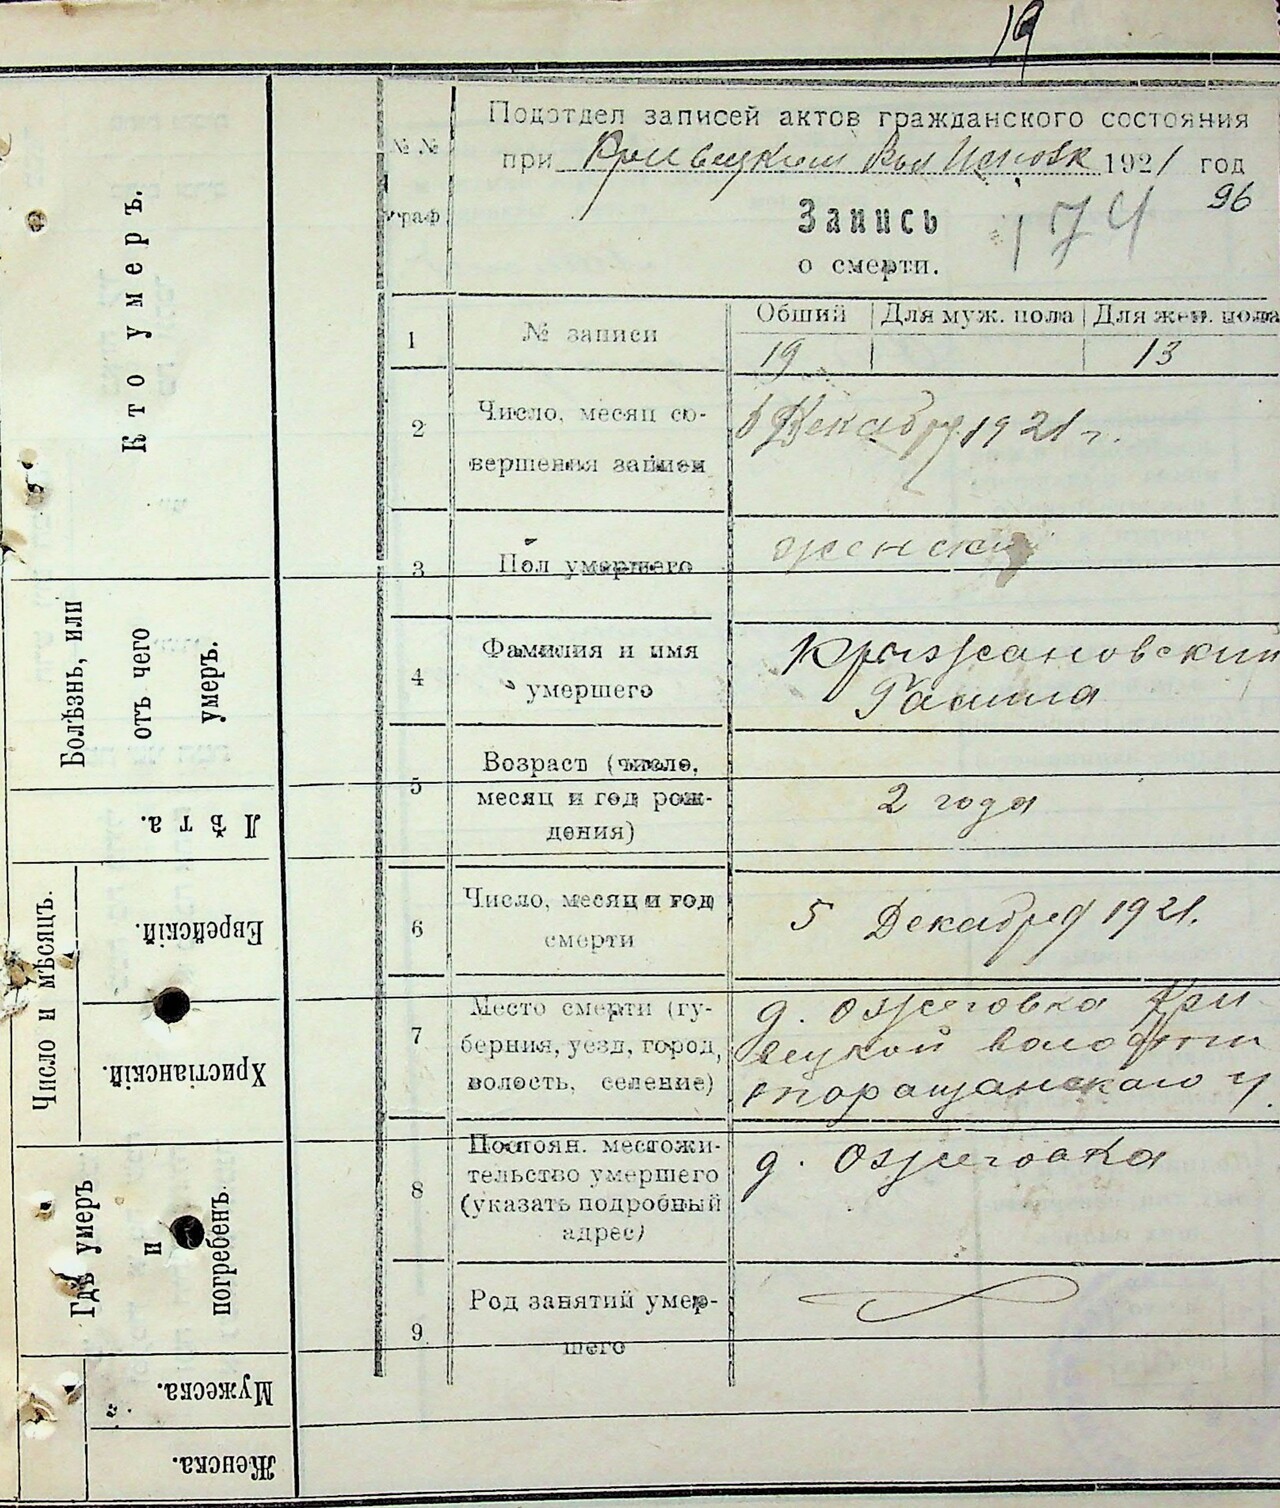 19
Подотдел записей актов гражданского состояния
при Кривецким Вол Исполк 1921 год
96
Запись 174
о смерти.
№№ граф.
1 № записи
Общий Для муж. пола Для жен. пола
19 13
2 Число, месяц со-
вершения записи
6 Декабря 1921 г.
3 Пол умершего
женски
4 Фамилия и имя
умершего
Крыжановский
Ганна
5 Возраст (число,
месяц и год рож-
дения)
2 года
6 Число, месяц и год
смерти
5 Декабря 1921.
7 Место смерти (гу-
берния, уезд, город,
волость, селение)
д. Ожеговка Кри-
вецкой волости
таращанскаго у.
8 Постоян. местожи-
тельство умершего
(указать подробный
адрес)
д. Ожеговка
9 Род занятий умер-
шего
Кто умеръ.
Болѣзнь, или
отъ чего
умеръ.
Лѣта.
Число и мѣсяцъ.
Еврейскій.
Христіанскій.
Гдѣ умеръ
и
погребенъ.
Мужеска.
Женска.